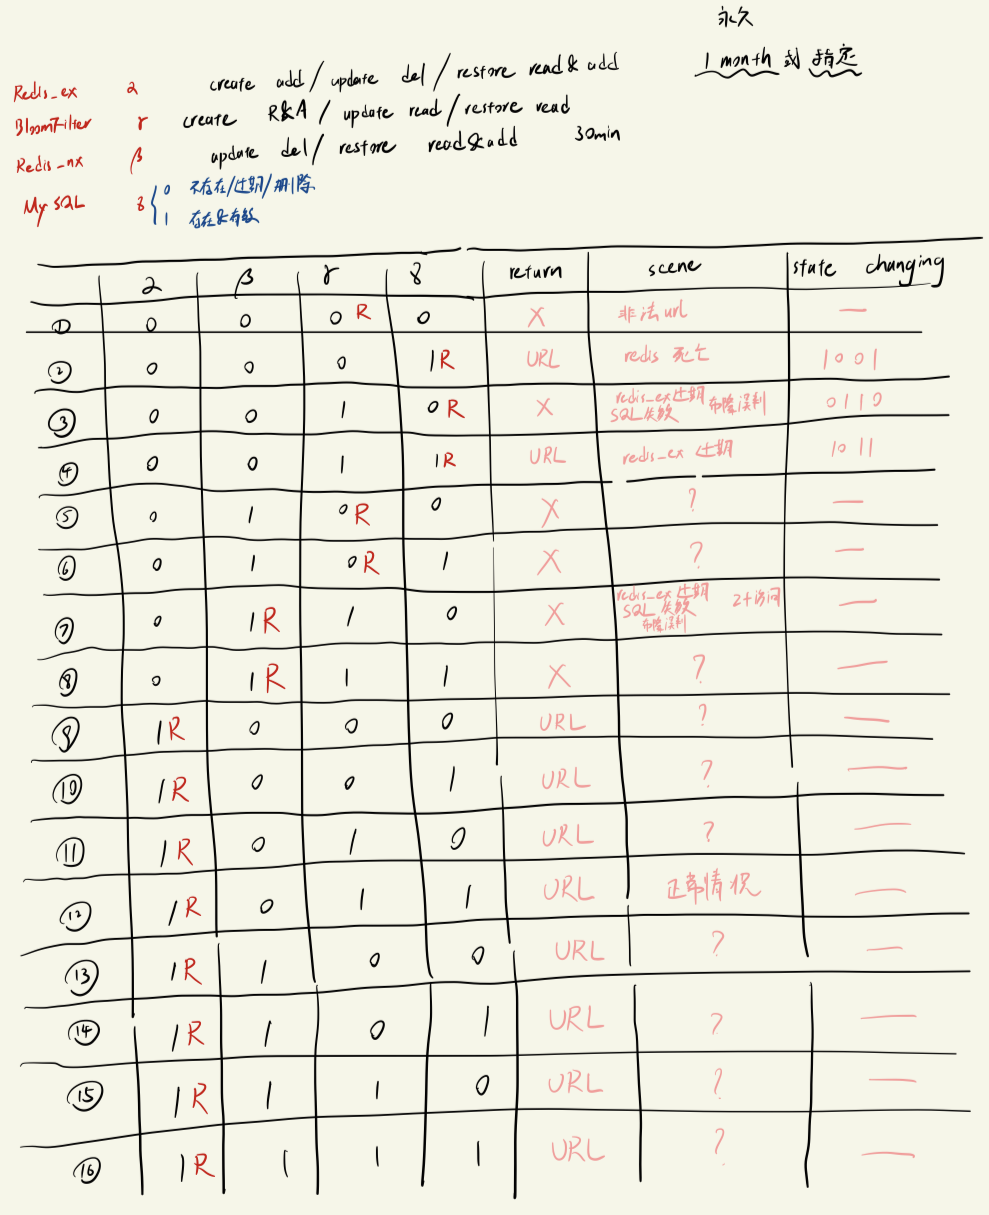 永久
1 month 或 指定
Redis_ex α create add / update del / restore read & add
BloomFilter γ create R&A / update read / restore read
Redis_nx β update del / restore read & add 30min
MySQL δ 0 不存在/过期/删除
1 存在&有效
α β γ δ return scene state changing
① 0 0 0 R 0 X 非法url —
② 0 0 0 1R URL redis 死亡 1001
③ 0 0 1 0R X redis_ex过期 SQL失效 布隆误判 0110
④ 0 0 1 1R URL redis_ex 过期 1011
⑤ 0 1 0R 0 X ? —
⑥ 0 1 0R 1 X ? —
⑦ 0 1R 1 0 X redis_ex过期 SQL失效 布隆误判 2+访问 —
⑧ 0 1R 1 1 X ? —
⑨ 1R 0 0 0 URL ? —
⑩ 1R 0 0 1 URL ? —
⑪ 1R 0 1 0 URL ? —
⑫ 1R 0 1 1 URL 正常情况 —
⑬ 1R 1 0 0 URL ? —
⑭ 1R 1 0 1 URL ? —
⑮ 1R 1 1 0 URL ? —
⑯ 1R 1 1 1 URL ? —